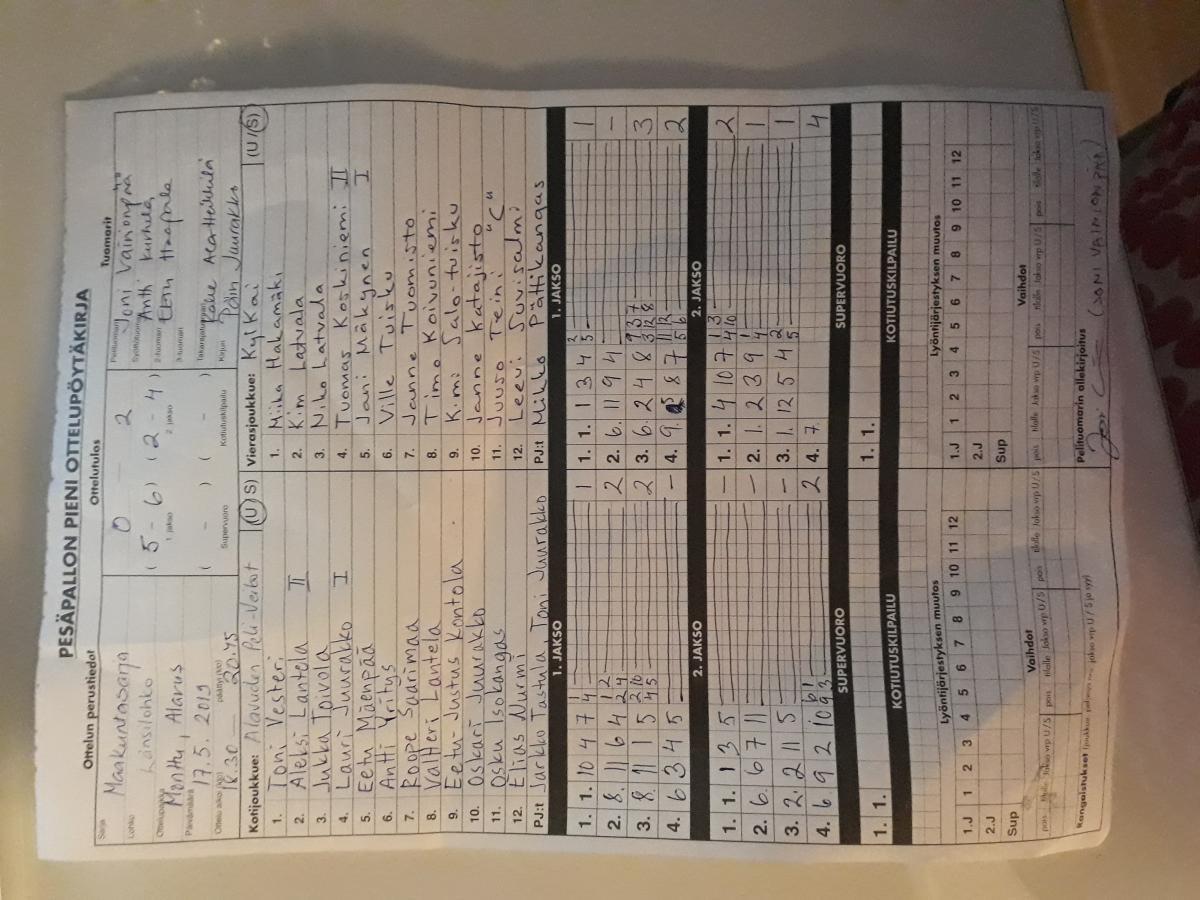 PESÄPALLON PIENI OTTELUPÖYTÄKIRJA
Ottelun perustiedot
Sarja Maakuntasarja
Lohko Länsilohko
Ottelupaikka Monttu, Alavus
Päivämäärä 17.5. 2019
Ottelu alkoi (klo) 18.30 päättyi (klo) 20.45
Ottelutulos
0 2
( 5 - 6 ) ( 2 - 4 )
1. jakso 2. jakso
( - ) ( - )
Supervuoro Kotiutuskilpailu
Tuomarit
Pelituomari Joni Vainionpää
Syöttötuomari Antti Kurhela
2-tuomari Eetu Haapala
3-tuomari
Takarajatuomari Lake Ala-Heikkilä
Kirjuri Päivi Juurakko
Kotijoukkue: Alavuden Peli-Veikot (U/S)
1. Toni Vesteri
2. Aleksi Lantela II
3. Jukka Toivola
4. Lauri Juurakko I
5. Eetu Mäenpää
6. Antti Yritys
7. Roope Saarimaa
8. Valtteri Lantela
9. Eetu-Justus Kontola
10. Oskari Juurakko
11. Osku Isokangas
12. Elias Nurmi
PJ:t Jarkko Tastula Toni Juurakko
Vierasjoukkue: KylKai (U/S)
1. Miika Hakamäki
2. Kim Latvala
3. Niko Latvala
4. Tuomas Koskiniemi II
5. Jani Mäkynen I
6. Ville Tuisku
7. Janne Tuomisto
8. Timo Koivuniemi
9. Kimi Salo-tuisku
10. Janne Katajisto
11. Juuso Teini "C"
12. Leevi Suvisalmi
PJ:t Mikko Pättikangas
1. JAKSO
1. 1. 10 4 7 1 4 1
2. 8. 11 6 4 1 2 2 4 2
3. 8. 11 1 5 2 10 4 5 2
4. 6 3 4 5 -
1. JAKSO
1. 1. 1 3 4 2 5 1
2. 6. 11 9 4 -
3. 6. 2 4 8 3
4. 9. 8 7 2
2. JAKSO
1. 1. 1 3 5 -
2. 6. 6 7 11 -
3. 2. 2 11 5 -
4. 6. 9 2 10 2
2. JAKSO
1. 1. 4 10 7 1 3 4 10 2
2. 1. 2 3 9 1 4 1
3. 1. 12 5 4 2 5 1
4. 7. 4
SUPERVUORO
1. 1.
SUPERVUORO
1. 1.
KOTIUTUSKILPAILU
KOTIUTUSKILPAILU
Lyöntijärjestyksen muutos
1.J 1 2 3 4 5 6 7 8 9 10 11 12
2.J
Sup
Lyöntijärjestyksen muutos
1.J 1 2 3 4 5 6 7 8 9 10 11 12
2.J
Sup
Vaihdot
pois tilalle Jakso vrp U / S pois tilalle Jakso vrp U / S pois tilalle Jakso vrp U / S
Vaihdot
pois tilalle Jakso vrp U / S pois tilalle Jakso vrp U / S pois tilalle Jakso vrp U / S
Rangaistukset (joukkue, pelaajan nro, jakso vrp U / S ja syy)
Pelituomarin allekirjoitus
(JONI VAINIONPÄÄ)